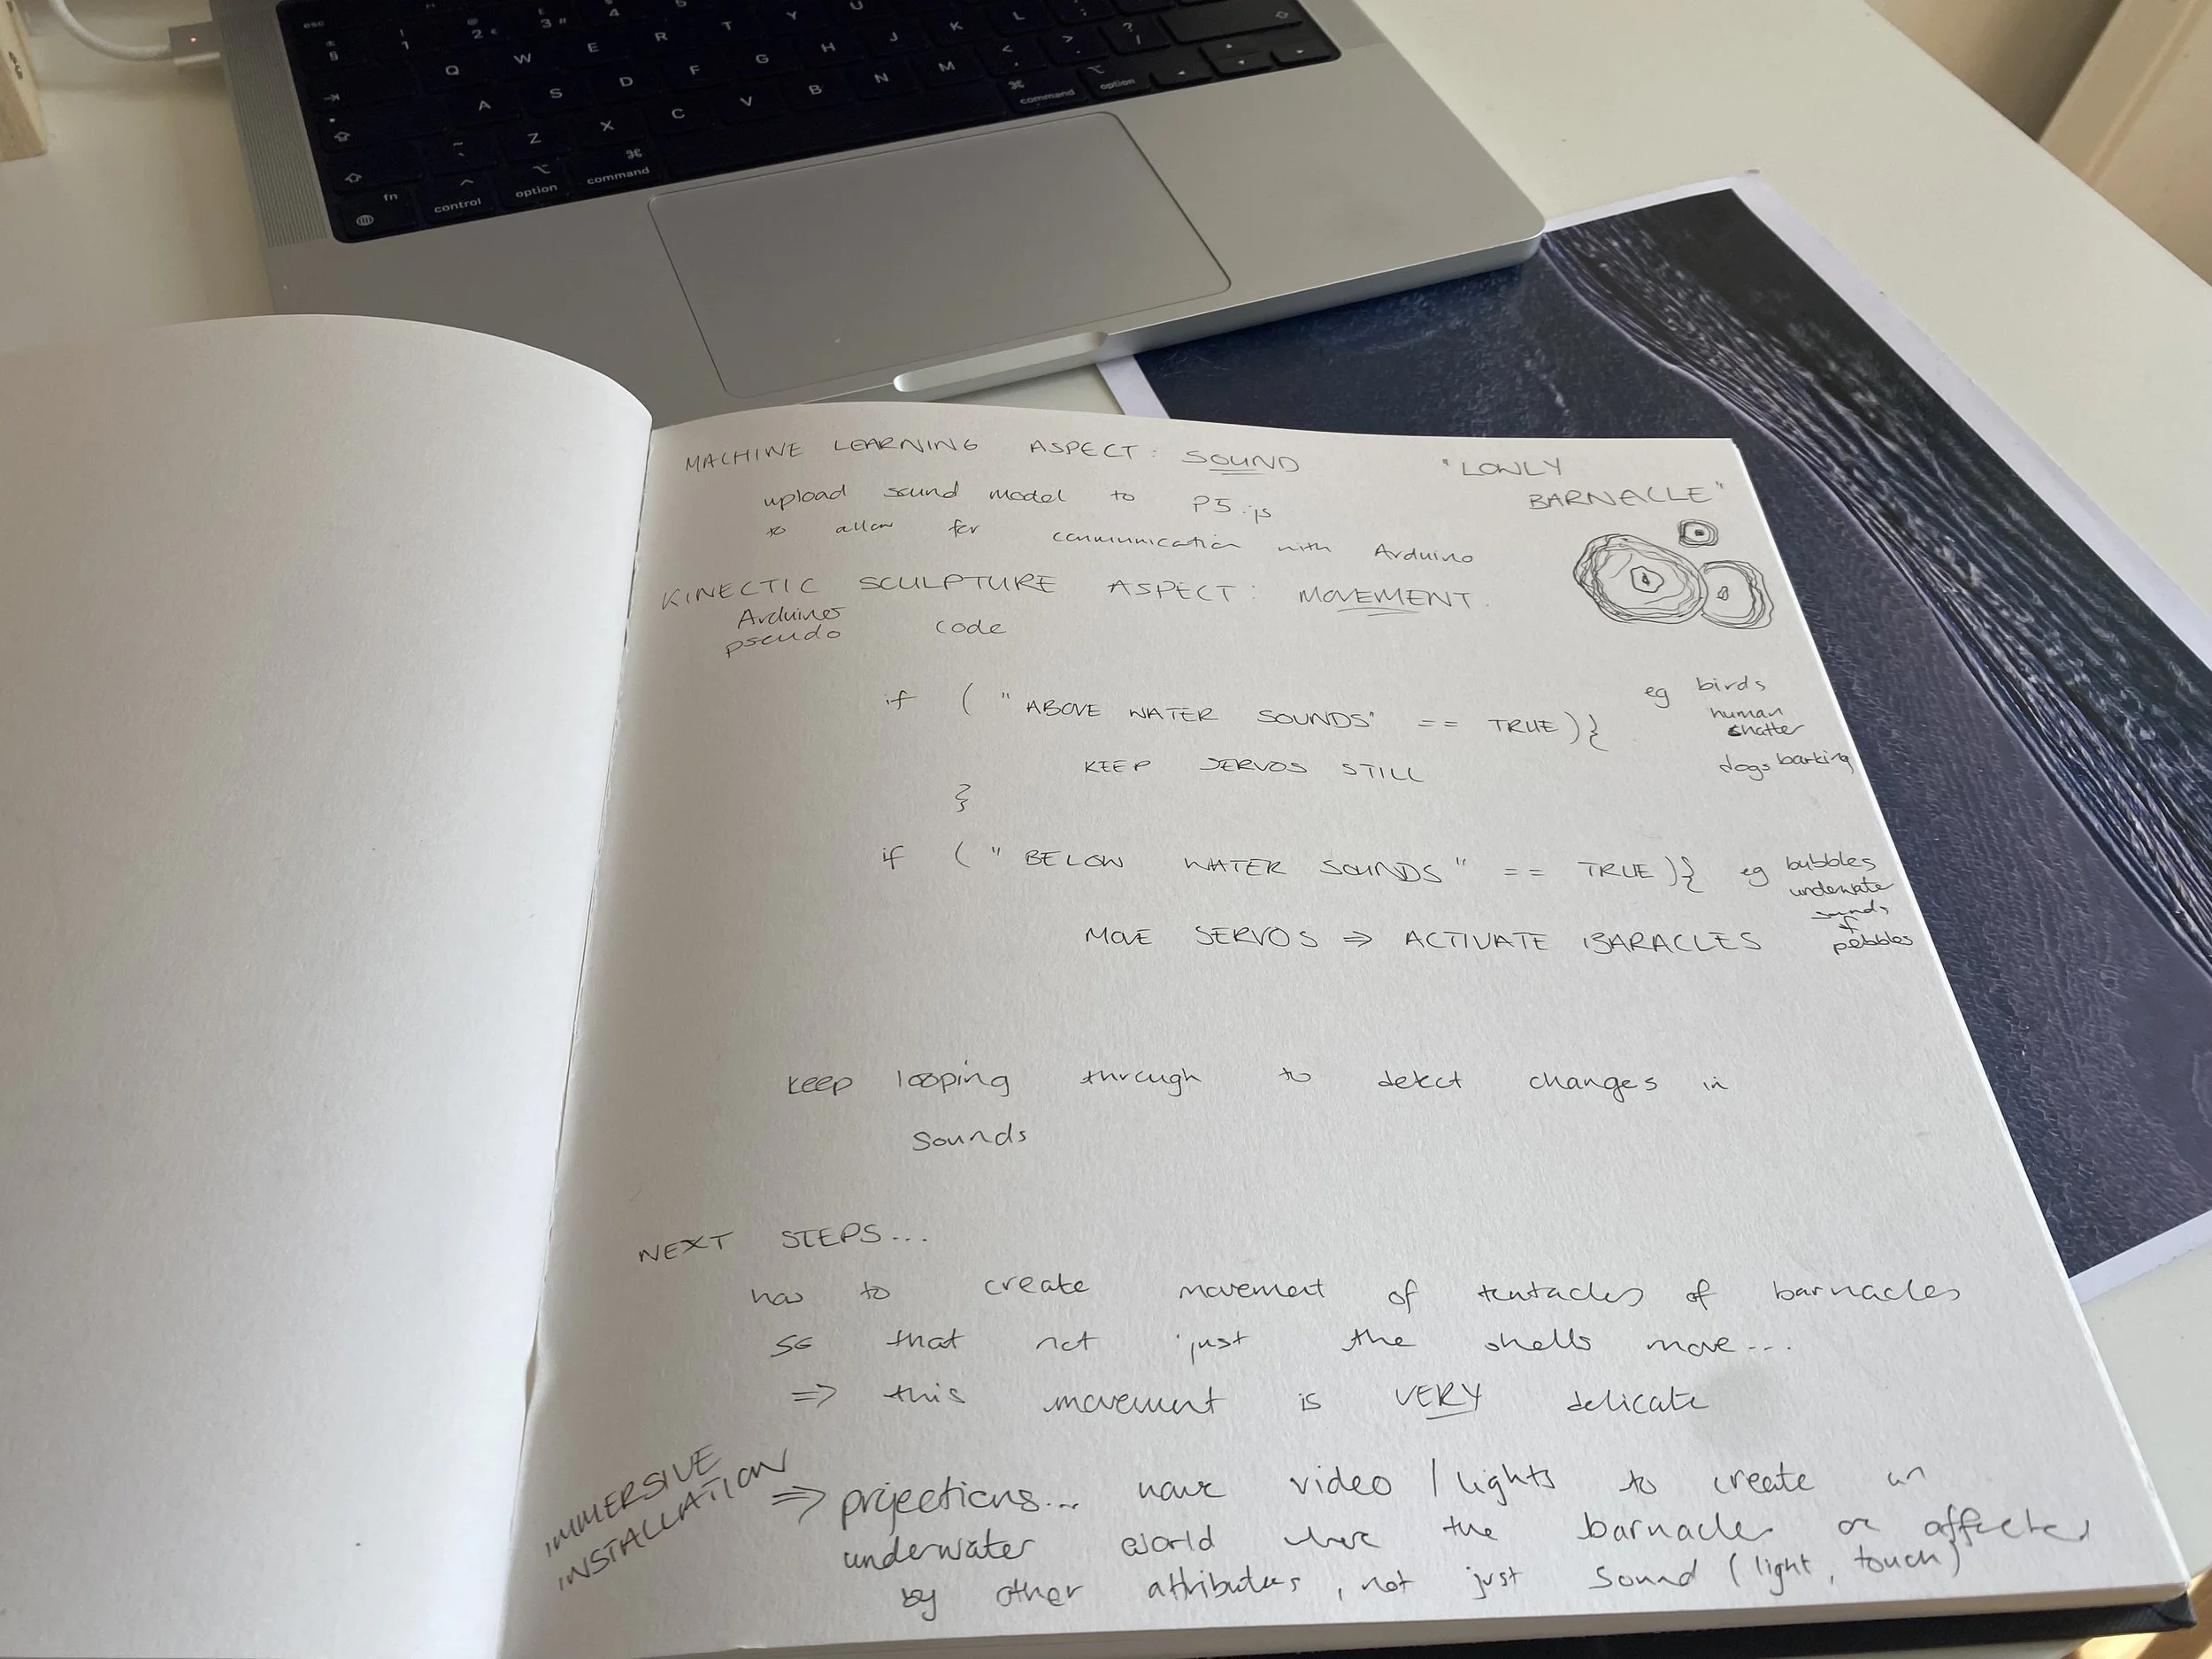 esc
3 #
4
±
§
!
1
@
2 €
Q
W
E
R
T
Y
U
A
S
D
F
G
H
J
K
L
Z
X
C
V
B
N
M
<
,
>
.
?
/
fn
control
⌥
option
⌘
command
⌘
command
⌥
option
MACHINE LEARNING ASPECT: SOUND
upload sound model to P5.js
to allow for communication with Arduino
"LOWLY
BARNACLE"
KINECTIC SCULPTURE ASPECT: MOVEMENT.
Arduino
pseudo code
if ( "ABOVE WATER SOUNDS" == TRUE){
eg birds
human
chatter
dogs barking
KEEP SERVOS STILL
}
if ( "BELOW WATER SOUNDS" == TRUE){
eg bubbles
underwate
sounds
of
pebbles
MOVE SERVOS ⇒ ACTIVATE BARACLES
keep looping through to detect changes in
sounds
NEXT STEPS...
how to create movement of tentacles of barnacles
so that not just the shells move...
⇒ this movement is VERY delicate
IMMERSIVE
INSTALLATION
⇒ projections... have video / lights to create an
underwater world where the barnacles are affected
by other attributes, not just sound (light, touch)